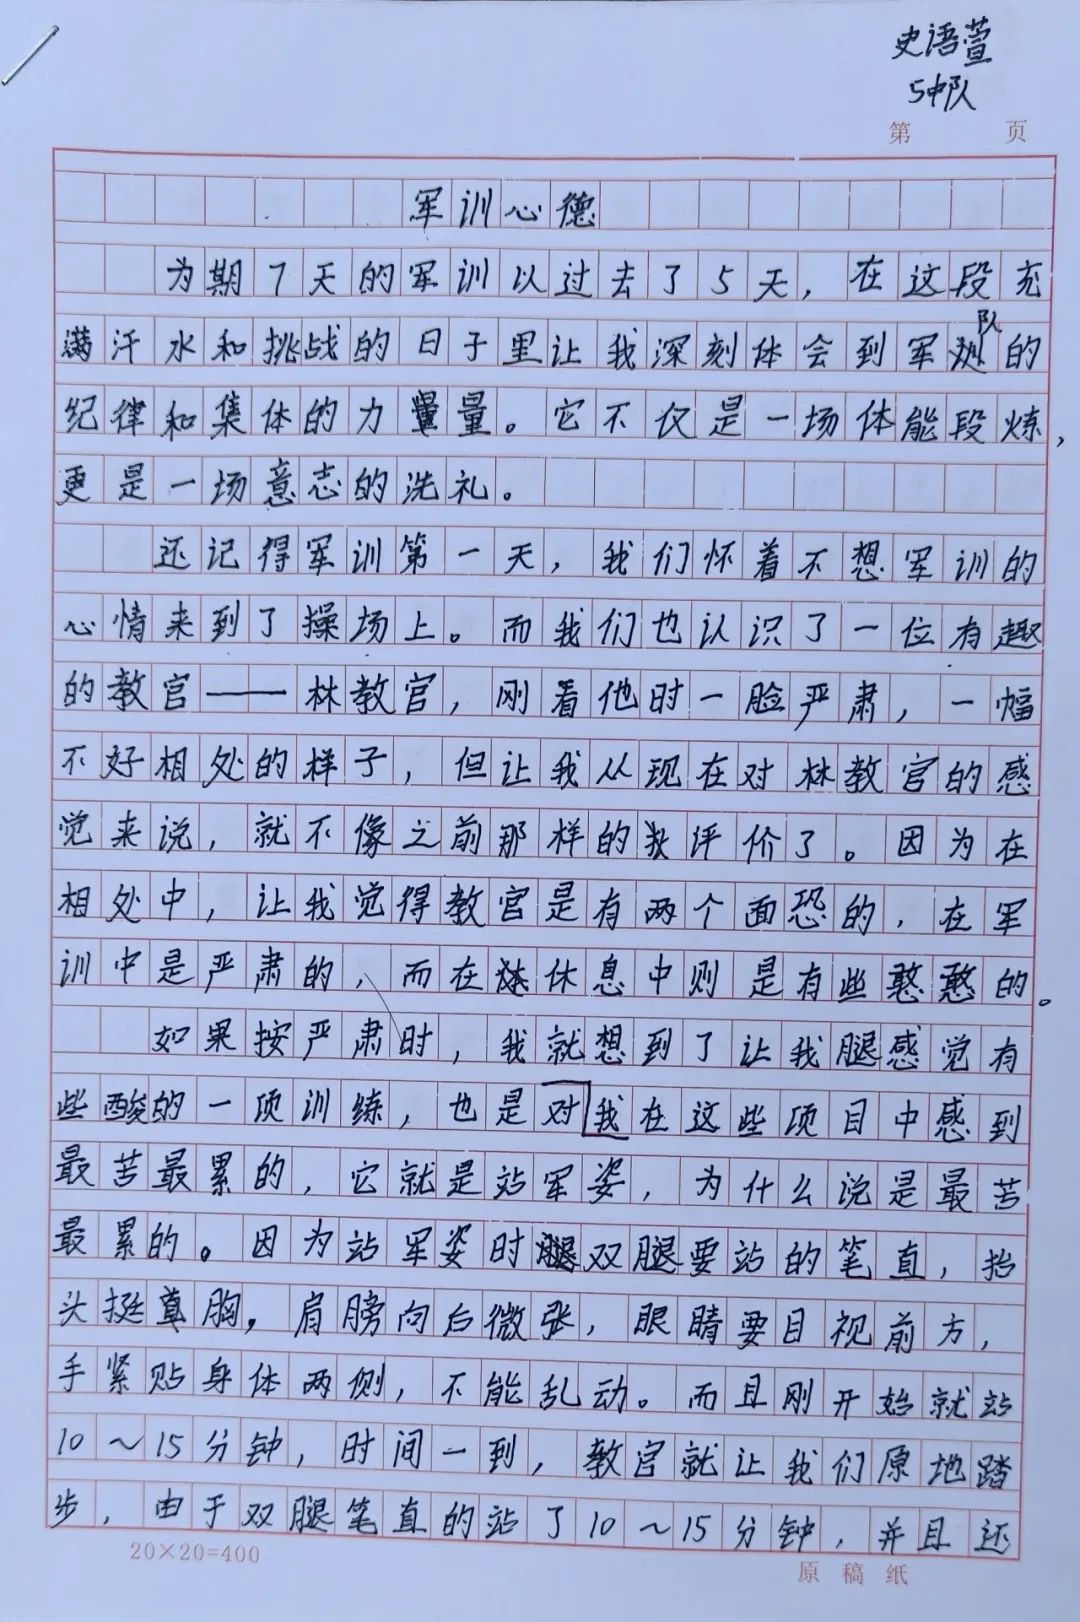 史语萱
5中队
第 页
军训心德
为期7天的军训以过去了5天，在这段充
满汗水和挑战的日子里让我深刻体会到军队的
纪律和集体的力量。它不仅是一场体能段炼，
更是一场意志的洗礼。
还记得军训第一天，我们怀着不想军训的
心情来到了操场上。而我们也认识了一位有趣
的教官——林教官，刚看他时一脸严肃，一幅
不好相处的样子，但让我从现在对林教官的感
觉来说，就不像之前那样的评价了。因为在
相处中，让我觉得教官是有两个面恐的，在军
训中是严肃的，而在休息中则是有些憨憨的。
如果按严肃时，我就想到了让我腿感觉有
些酸的一项训练，也是对我在这些项目中感到
最苦最累的，它就是站军姿，为什么说是最苦
最累的。因为站军姿时双腿要站的笔直，抬
头挺胸，肩膀向后微张，眼睛要目视前方，
手紧贴身体两侧，不能乱动。而且刚开始就站
10～15分钟，时间一到，教官就让我们原地踏
步，由于双腿笔直的站了10～15分钟，并且还
20×20=400
原稿纸